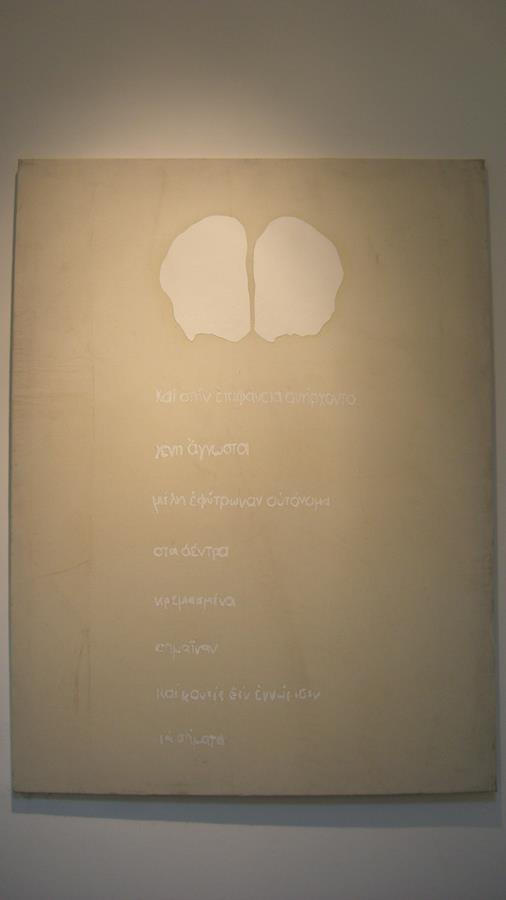 Καὶ στὴν ἐπιφάνεια ἀνήρχοντο
γένη ἄγνωστα
μέλη ἐφύτρωναν αὐτόνομα
στὰ δέντρα
κρεμασμένα
σημαῖναν
καὶ κανεὶς δὲν ἐγνώρισεν
τὰ σήματα